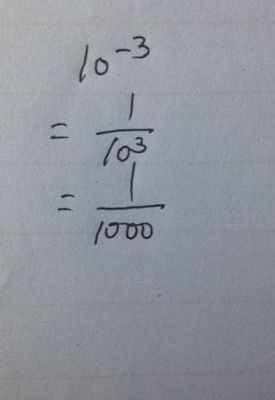 10⁻³
= 1/10³
= 1/1000